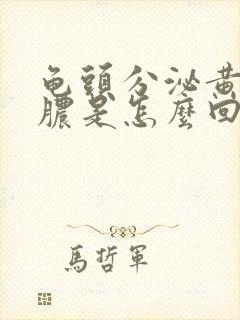 龟頭分泌黄
膿是怎麼回
馬哲軍